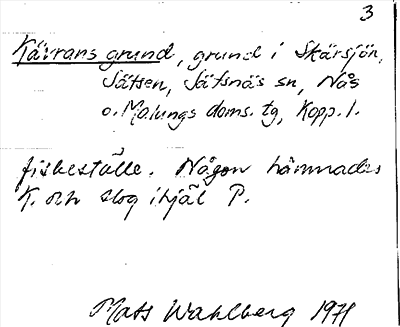 3
Kävrans grund, grund i Skärsjön,
Sätsen, Jätsnäs sn, Nås
o. Malungs doms. tg, Kopp. l.
fiskeställe. Någon hämnades
K. och slog ihjäl P.
Mats Wahlberg 1971